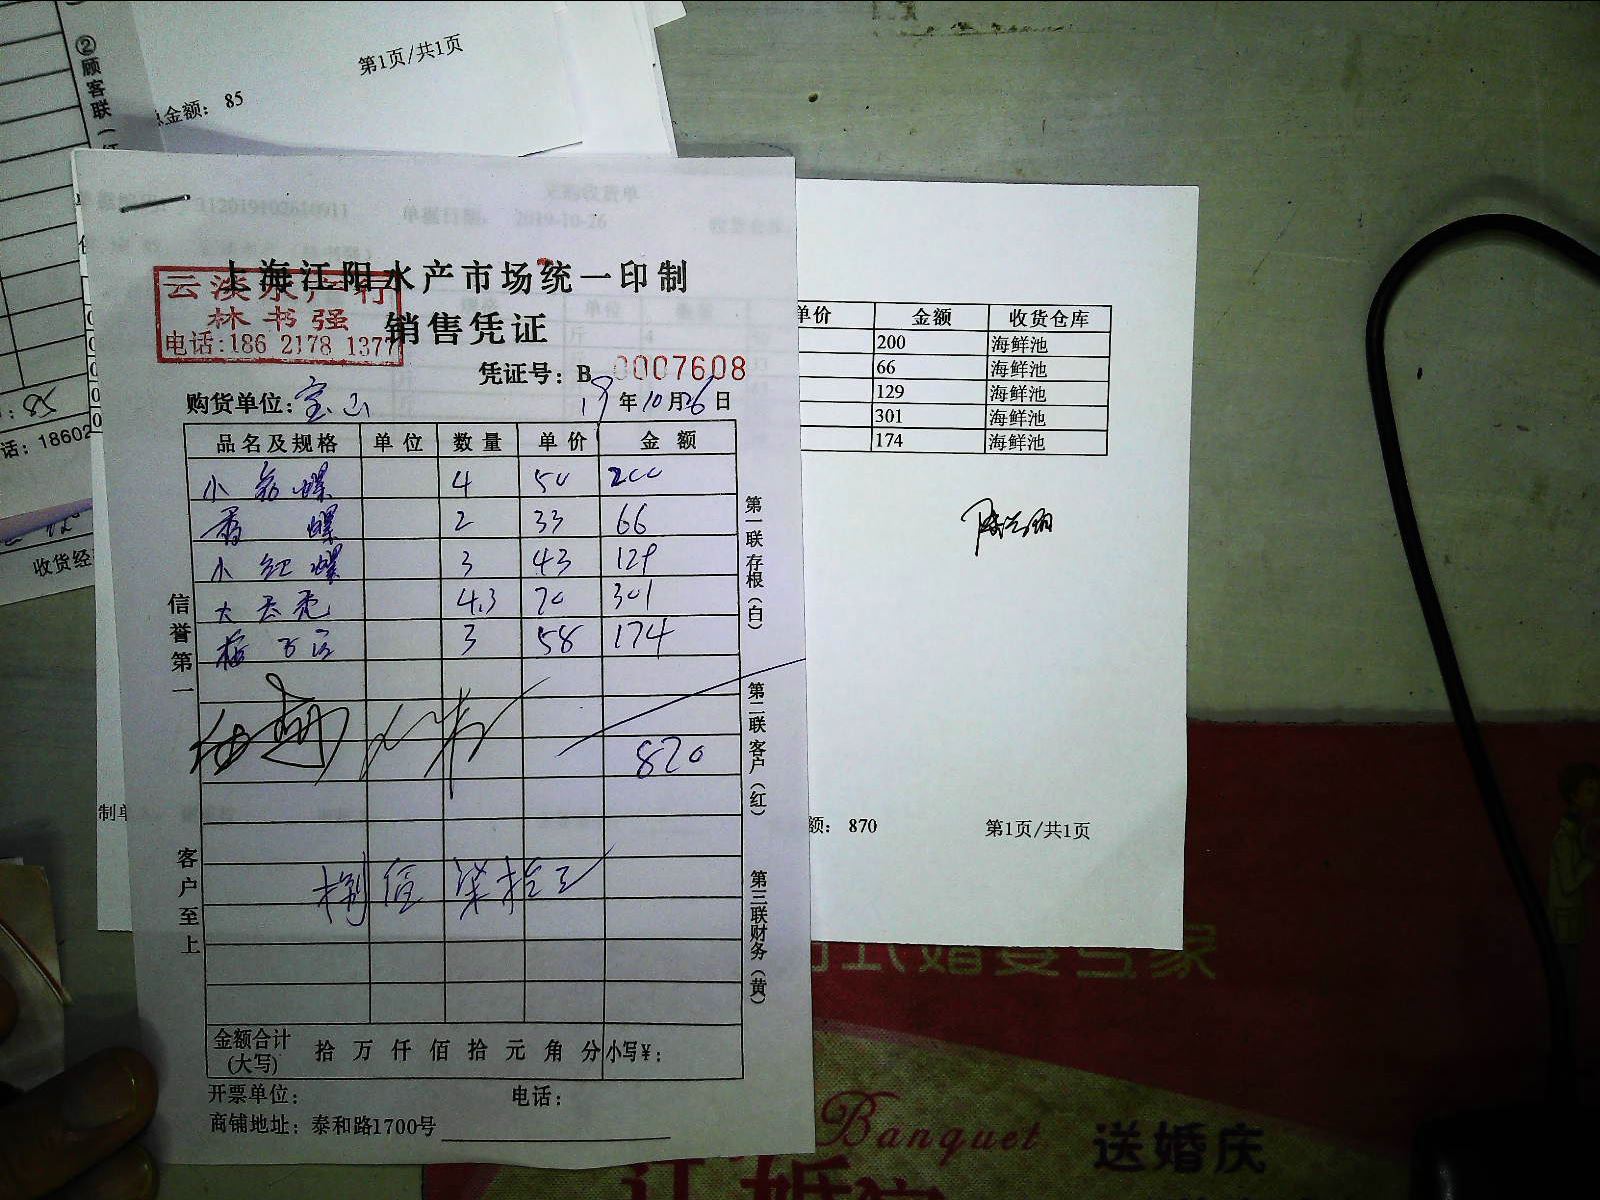 ②顾客联(红
第1页/共1页
总金额: 85
话: 18602
收货经
采购收货单
112019102610911 单据日期: 2019-10-26
上海江阳水产市场统一印制
云淡水产行
林书强
电话:186 2178 1377
销售凭证
凭证号: B 0007608
购货单位: 宝山 19年10月26日
品名及规格 单位 数量 单价 金额
小 螺 4 50 200
香 螺 2 33 66
小 红 螺 3 43 129
大 4.3 70 301
梅 3 58 174
870
捌佰柒拾元
金额合计(大写) 拾 万 仟 佰 拾 元 角 分 小写¥:
开票单位: 电话:
商铺地址: 泰和路1700号
信誉第一
客户至上
第一联存根(白)
第二联客户(红)
第三联财务(黄)
单价 金额 收货仓库
200 海鲜池
66 海鲜池
129 海鲜池
301 海鲜池
174 海鲜池
制单
额: 870 第1页/共1页
式婚宴专家
Banquet 送婚庆
订婚宴